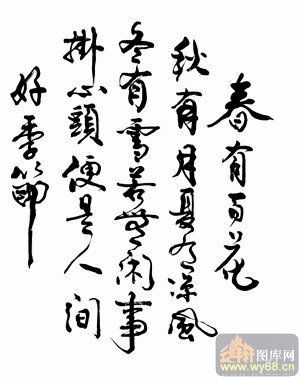 春有百花
秋有月夏有涼風
冬有雪若無閑事
掛心頭便是人間
好季節
图库网
www.wy68.cn